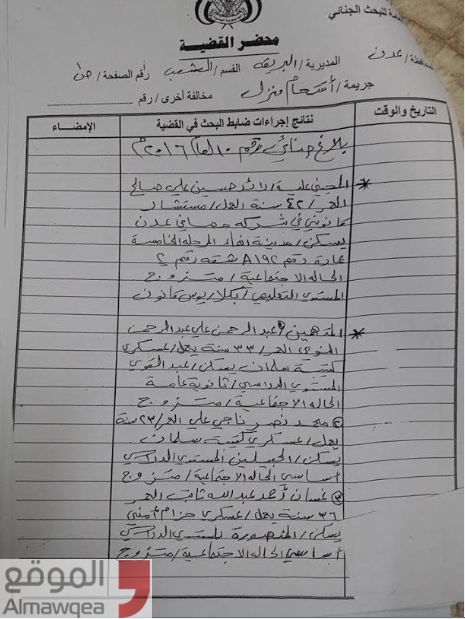 للبحث الجنائي
محضر القضية
محافظة / عدن المديرية / البريقه القسم / الشعب رقم الصفحة /
جريمة / اقتحام منزل مخالفة أخرى / رقم
التاريخ والوقت نتائج إجراءات ضابط البحث في القضية الإمضاء
بلاغ جنائي رقم ١٠ لعام ٢٠١٦م
* المجني عليه / لائد حسين علي صالح
العمر / ٤٢ سنة العمل / مستشار
قانوني في شركه مصافي عدن
يسكن / مدينة انماء المرحله الخامسة
عمارة رقم A١٩٢ شقه رقم ٢
الحاله الاجتماعية / متزوج
المستوى التعليمي / بكلاريوس قانون
* المتهمين عبدالرحمن علي عبدالرحمن
العمر / ٣٣ سنة يعمل / عسكري
كتيبة سلمان يسكن / عبدالقوي
المستوى الدراسي / ثانوية عامة
الحاله الاجتماعية / متزوج
② محمد نصر ناجي علي العمر / ٢٣ سنة
يعمل / عسكري كتيبة سلمان
يسكن / المستوى الدراسي
أساسي الحاله الاجتماعية / متزوج
③ غسان أحمد عبدالله ثابت العمر
٣٦ سنة يعمل / عسكري حزام أمني
يسكن / المنصورة المستوى الدراسي
أساسي الحاله الاجتماعية / متزوج
الموقع
Almawqea